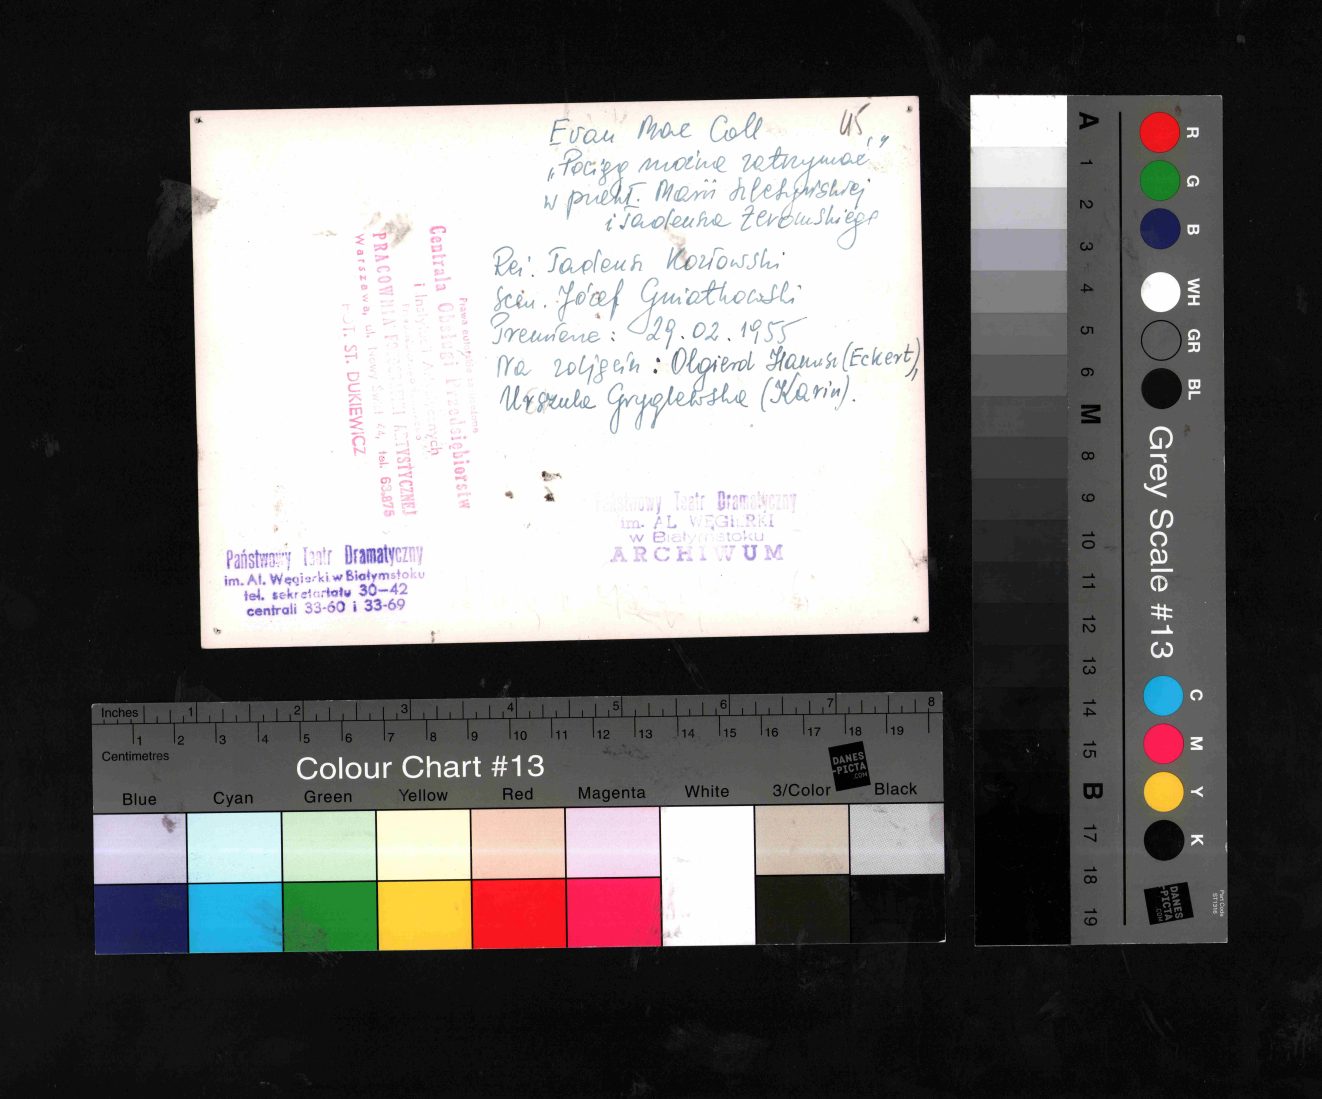 Evan Mac Coll
45
„Pociąg można zatrzymać"
w przekł. Marii
i Tadeusza Żeromskiego
Reż. Tadeusz Kozłowski
Scen. Józef Gniatkowski
Premiera: 29.02.1955
Na zdjęciu: Olgierd Hanus (Eckert),
Urszula Gryglewska (Karin).
Prawa autorskie zastrzeżone
Centrala Obsługi Przedsiębiorstw
i Instytucji Artystycznych
PRACOWNIA FOTOGRAFII ARTYSTYCZNEJ
Warszawa, ul. Nowy Świat 24, tel. 63.875
FOT. ST. DUKIEWICZ
Państwowy Teatr Dramatyczny
im. AL WĘGIERKI
w Białymstoku
ARCHIWUM
Państwowy Teatr Dramatyczny
im. Al. Węgierki w Białymstoku
tel. sekretariatu 30-42
centrali 33-60 i 33-69
Inches 1 2 3 4 5 6 7 8
1 2 3 4 5 6 7 8 9 10 11 12 13 14 15 16 17 18 19
Centimetres
Colour Chart #13
DANES
-PICTA
.COM
Blue Cyan Green Yellow Red Magenta White 3/Color Black
A 1 2 3 4 5 6 M 8 9 10 11 12 13 14 15 B 17 18 19
R G B WH GR BL
Grey Scale #13
C M Y K
DANES
-PICTA
.COM
Part Code
ST1316